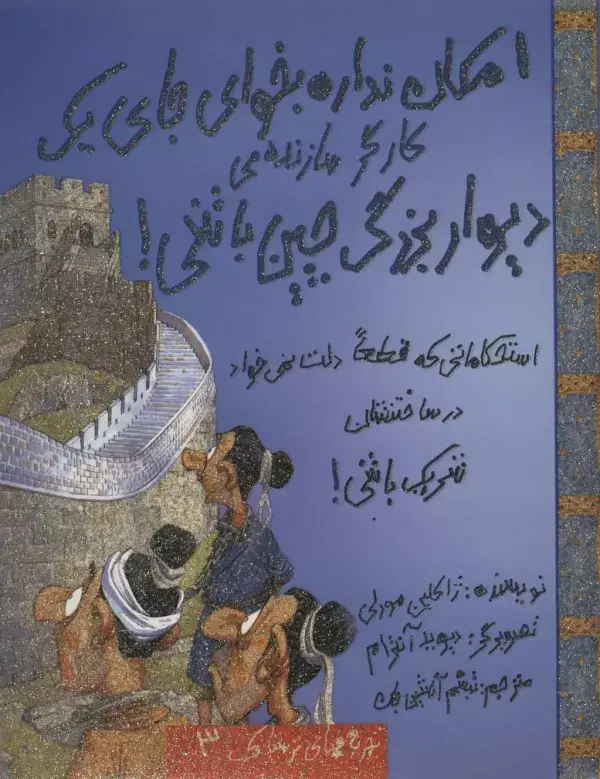 امکان نداره بخوای جای یک
کارگر سازنده‌ی
دیوار بزرگ چین باشی!
استحکاماتی که قطعاً دلت نمی‌خواد
در ساختشان
شریک باشی!
نویسنده: ژاکلین مورلی
تصویرگر: دیوید آنترام
مترجم: تبسم آتشین‌جان
۳